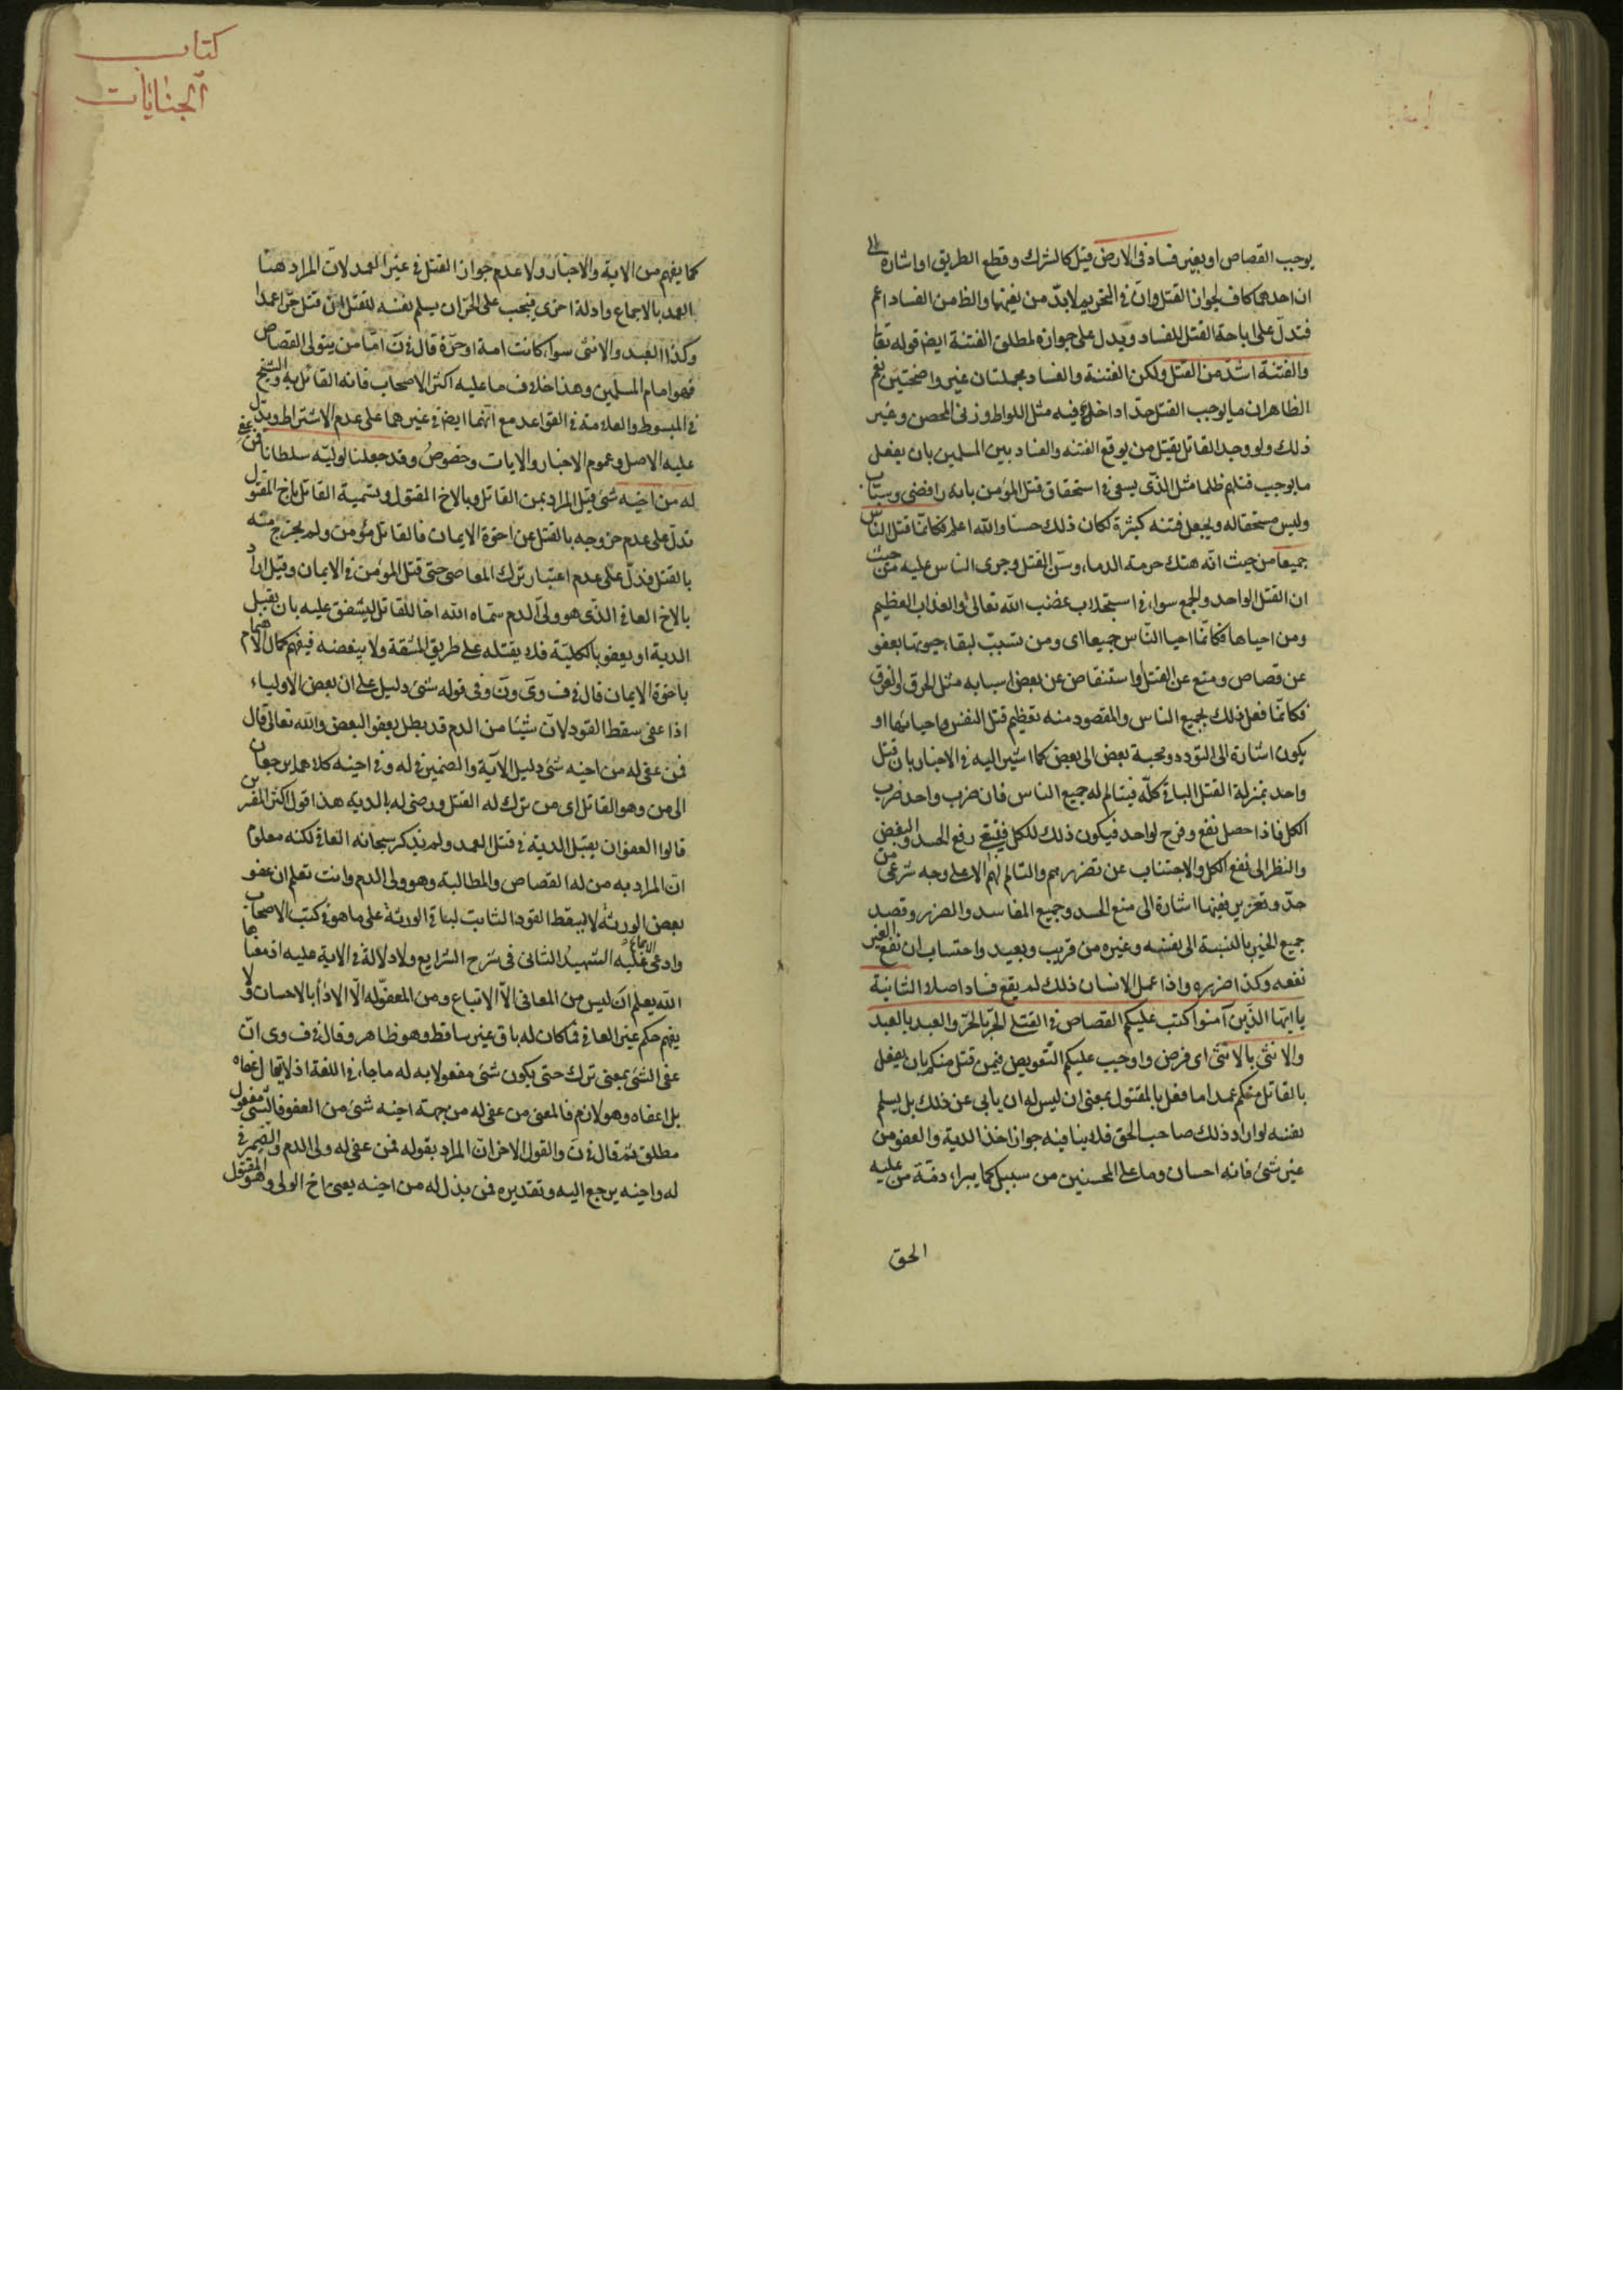 يوجب القصاص او بغير فساد فى الارض قيل كالشرك وقطع الطريق او اشارة الى
ان احدهما كاف لجواز القتل وان فى التحريم لا بدّ من نفيهما والظ من الفساد اعم
فتدلّ على اباحة القتل للفساد ويدل على جوازه لمطلق الفتنة ايضا قوله تعا
والفتنة اشدّ من القتل ولكن الفتنة والفساد مجملتان غير واضحتين نعم
الظاهر ان ما يوجب القتل حدّا داخل فيه مثل اللواط وزنى المحصن وغير
ذلك ولو وجد القاتل يقتل من يوقع الفتنه والفساد بين المسلمين بان يفعل
ما يوجب قتلهم ظلما مثل الذّى يسعى فى استحقاق قتل المؤمن بانه رافضى وسبّاب
وليس مستحقا له ويجعل فتنه كثيرة لكان ذلك حسنا والله اعلم فكانّما قتل الناس
جميعا من حيث انّه هتك حرمة الدماء وسنّ القتل وجرى الناس عليه من حيث
ان القتل الواحد والجمع سواء فى استجلاب غضب الله تعالى والعذاب العظيم
ومن احياها فكانّما احيا النّاس جميعا اى ومن تسبّب لبقاء حيوتها بعفو
عن قصاص ومنع عن القتل واستنقاص عن بعض اسبابه مثل الحرق والغرق
فكانّما فعل ذلك بجميع الناس والمقصود منه تعظيم قتل النفس واحيائها او
يكون اشارة الى التودد ومحبة بعض الى بعض كما اشير اليه فى الاخبار بان قتل
واحد بمنزلة القتل الباقى كلّه فيتالم له جميع الناس فان ضرب واحد ضرب
الكل فاذا حصل نفع وفرح لواحد فيكون ذلك للكل فينبغى رفع الحسد والبغض
والنظر الى نفع الكل والاجتناب عن تضررهم والتالم لهم الا على وجه شرعى من
حدّ وتعزير ففيها اشارة الى منع الحسد وجميع المفاسد والضرر وقصد
جميع الخير بالنسبة الى نفسه وغيره من قريب وبعيد واحتساب ان نفع الغير
نفعه وكذا ضرره واذا عمل الانسان ذلك لم يقع فساد اصلا الثانية
يا ايّها الذّين آمنوا كتب عليكم القصاص فى القتلى الحرّ بالحرّ والعبد بالعبد
والانثى بالانثى اى فرض واوجب عليكم التّعويض فيمن قتل منكم بان يفعل
بالقاتل منكم عمدا ما فعل بالمقتول بمعنى ان ليس له ان يابى عن ذلك بل يسلم
نفسه لو اراد ذلك صاحب الحق فلا ينافيه جواز اخذ الدية والعفو من
غير شئ فانه احسان وما على المحسنين من سبيل كما يبراء ذمّة من عليه
الحق
كتاب
الجنايات
كما يفهم من الاية والاخبار ولا عدم جواز القتل فى غير العمد لان المراد هنا
العمد بالاجماع وادلة اخرى فيجب على الحرّ ان يسلم نفسه للقتل ان قتل حرّا عمدا
وكذا العبد والانثى سواء كانت امة او حرّة قال فى ن امّا من يتولى القصاص
فهو امام المسلمين وهذا خلاف ما عليه اكثر الاصحاب فانه القائل به والشيخ
فى المبسوط والعلامة فى القواعد مع انّهما ايضا فى غيرهما على عدم الاشتراط ويدل
عليه الاصل وعموم الاخبار والايات وخصوص وقد جعلنا لوليّه سلطانا فمن عفى
له من اخيه شئ قيل المراد بمن القاتل وبالاخ المقتول وتسمية القاتل باخ المقتول
تدلّ على عدم خروجه بالقتل عن اخوّة الايمان فالقاتل مؤمن ولم يخرج منه
بالقتل فدلّ على عدم اعتبار ترك المعاصى حتى قتل المؤمن فى الايمان وقيل اراد
بالاخ العافى الذّى هو ولىّ الدم سمّاه الله اخا للقاتل ليشفق عليه بان يقبل
الدية او يعفو بالكليّة فلا يقتله على طريق المشقة ولا يبغضه فيفهم كمال الاهتمام
باخوّة الايمان قال فى ف وى ون وفى قوله شئ دليل على ان بعض الاولياء
اذا عفى سقط القود لانّ شيئا من الدم قد بطل بعفو البعض والله تعالى قال
فمن عفى له من اخيه شئ دليل الآية والضمير فى له وفى اخيه كلاهما يرجعان
الى من وهو القاتل اى من ترك له القتل ورضى له بالديه هذا قول اكثر المفسرين
قالوا العفو ان يقبل الدية فى قتل العمد ولم يذكر سبحانه العافى لكنه معلوم
انّ المراد به من له القصاص والمطالبة وهو ولى الدم وانت تعلم ان عفو
بعض الورثة لا يسقط القود الثابت لباقى الورثة على ما هو فى كتب الاصحاب
وادعى عليه الاجماع الشهيد الثانى فى شرح الشرايع ولا دلالة فى الاية عليه اذ معناها
الله يعلم ان ليس من المعافى الّا الاتباع ومن المعفوّ له الّا الاداء بالاحسان ولا
يفهم حكم غير العافى فكان له باق غير ساقط وهو ظاهر وقال فى ف وى انّ
عفى الشئ بمعنى ترك حتى يكون شئ مفعولا به له ما جاء فى اللغة اذ لا يقال عفاه
بل اعفاه وهو لازم فالمعنى من عفى له من جهة اخيه شئ من العفو فالشئ مفعول
مطلق ثم قال فى ن والقول الاخر انّ المراد بقوله فمن عفى له ولى الدم والضمير فى
له واخيه يرجع اليه وتقديره فمن بذل له من اخيه يعنى اخ الولى وهو المقتول